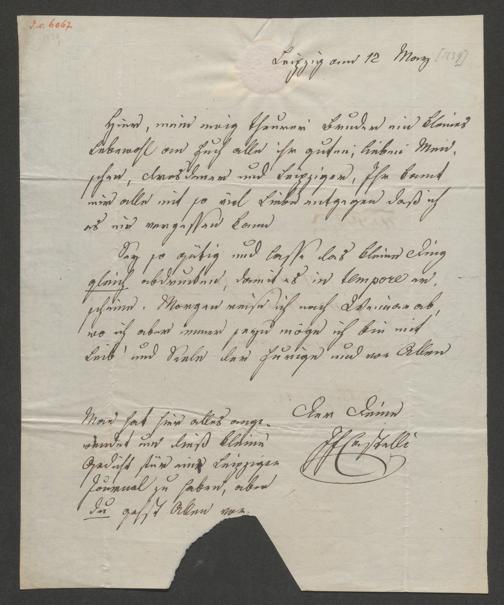 I.N. 6067
Leipzig am 12 März [1839]
Hier, mein ewig theurer Bruder ein kleines
Lebewohl an Euch alle ihr guten, lieben Men-
schen, Dresdener und Leipziger, Ihr kamt
mir alle mit so viel Liebe entgegen daß ich
es nie vergessen kann
Sey so gütig und lasse das kleine Ding
gleich abdrucken, damit es in tempore er-
scheine. Morgen reise ich nach Weimar ab,
wo ich aber immer seyn möge ich bin mit
Leib und Seele der Eurige und vor Allen
Der Deine
JFCastelli
Man hat hier alles ange-
wendet um dieß kleine
Gedicht für ein Leipziger
Journal zu haben, aber
du gehst Allen vor.